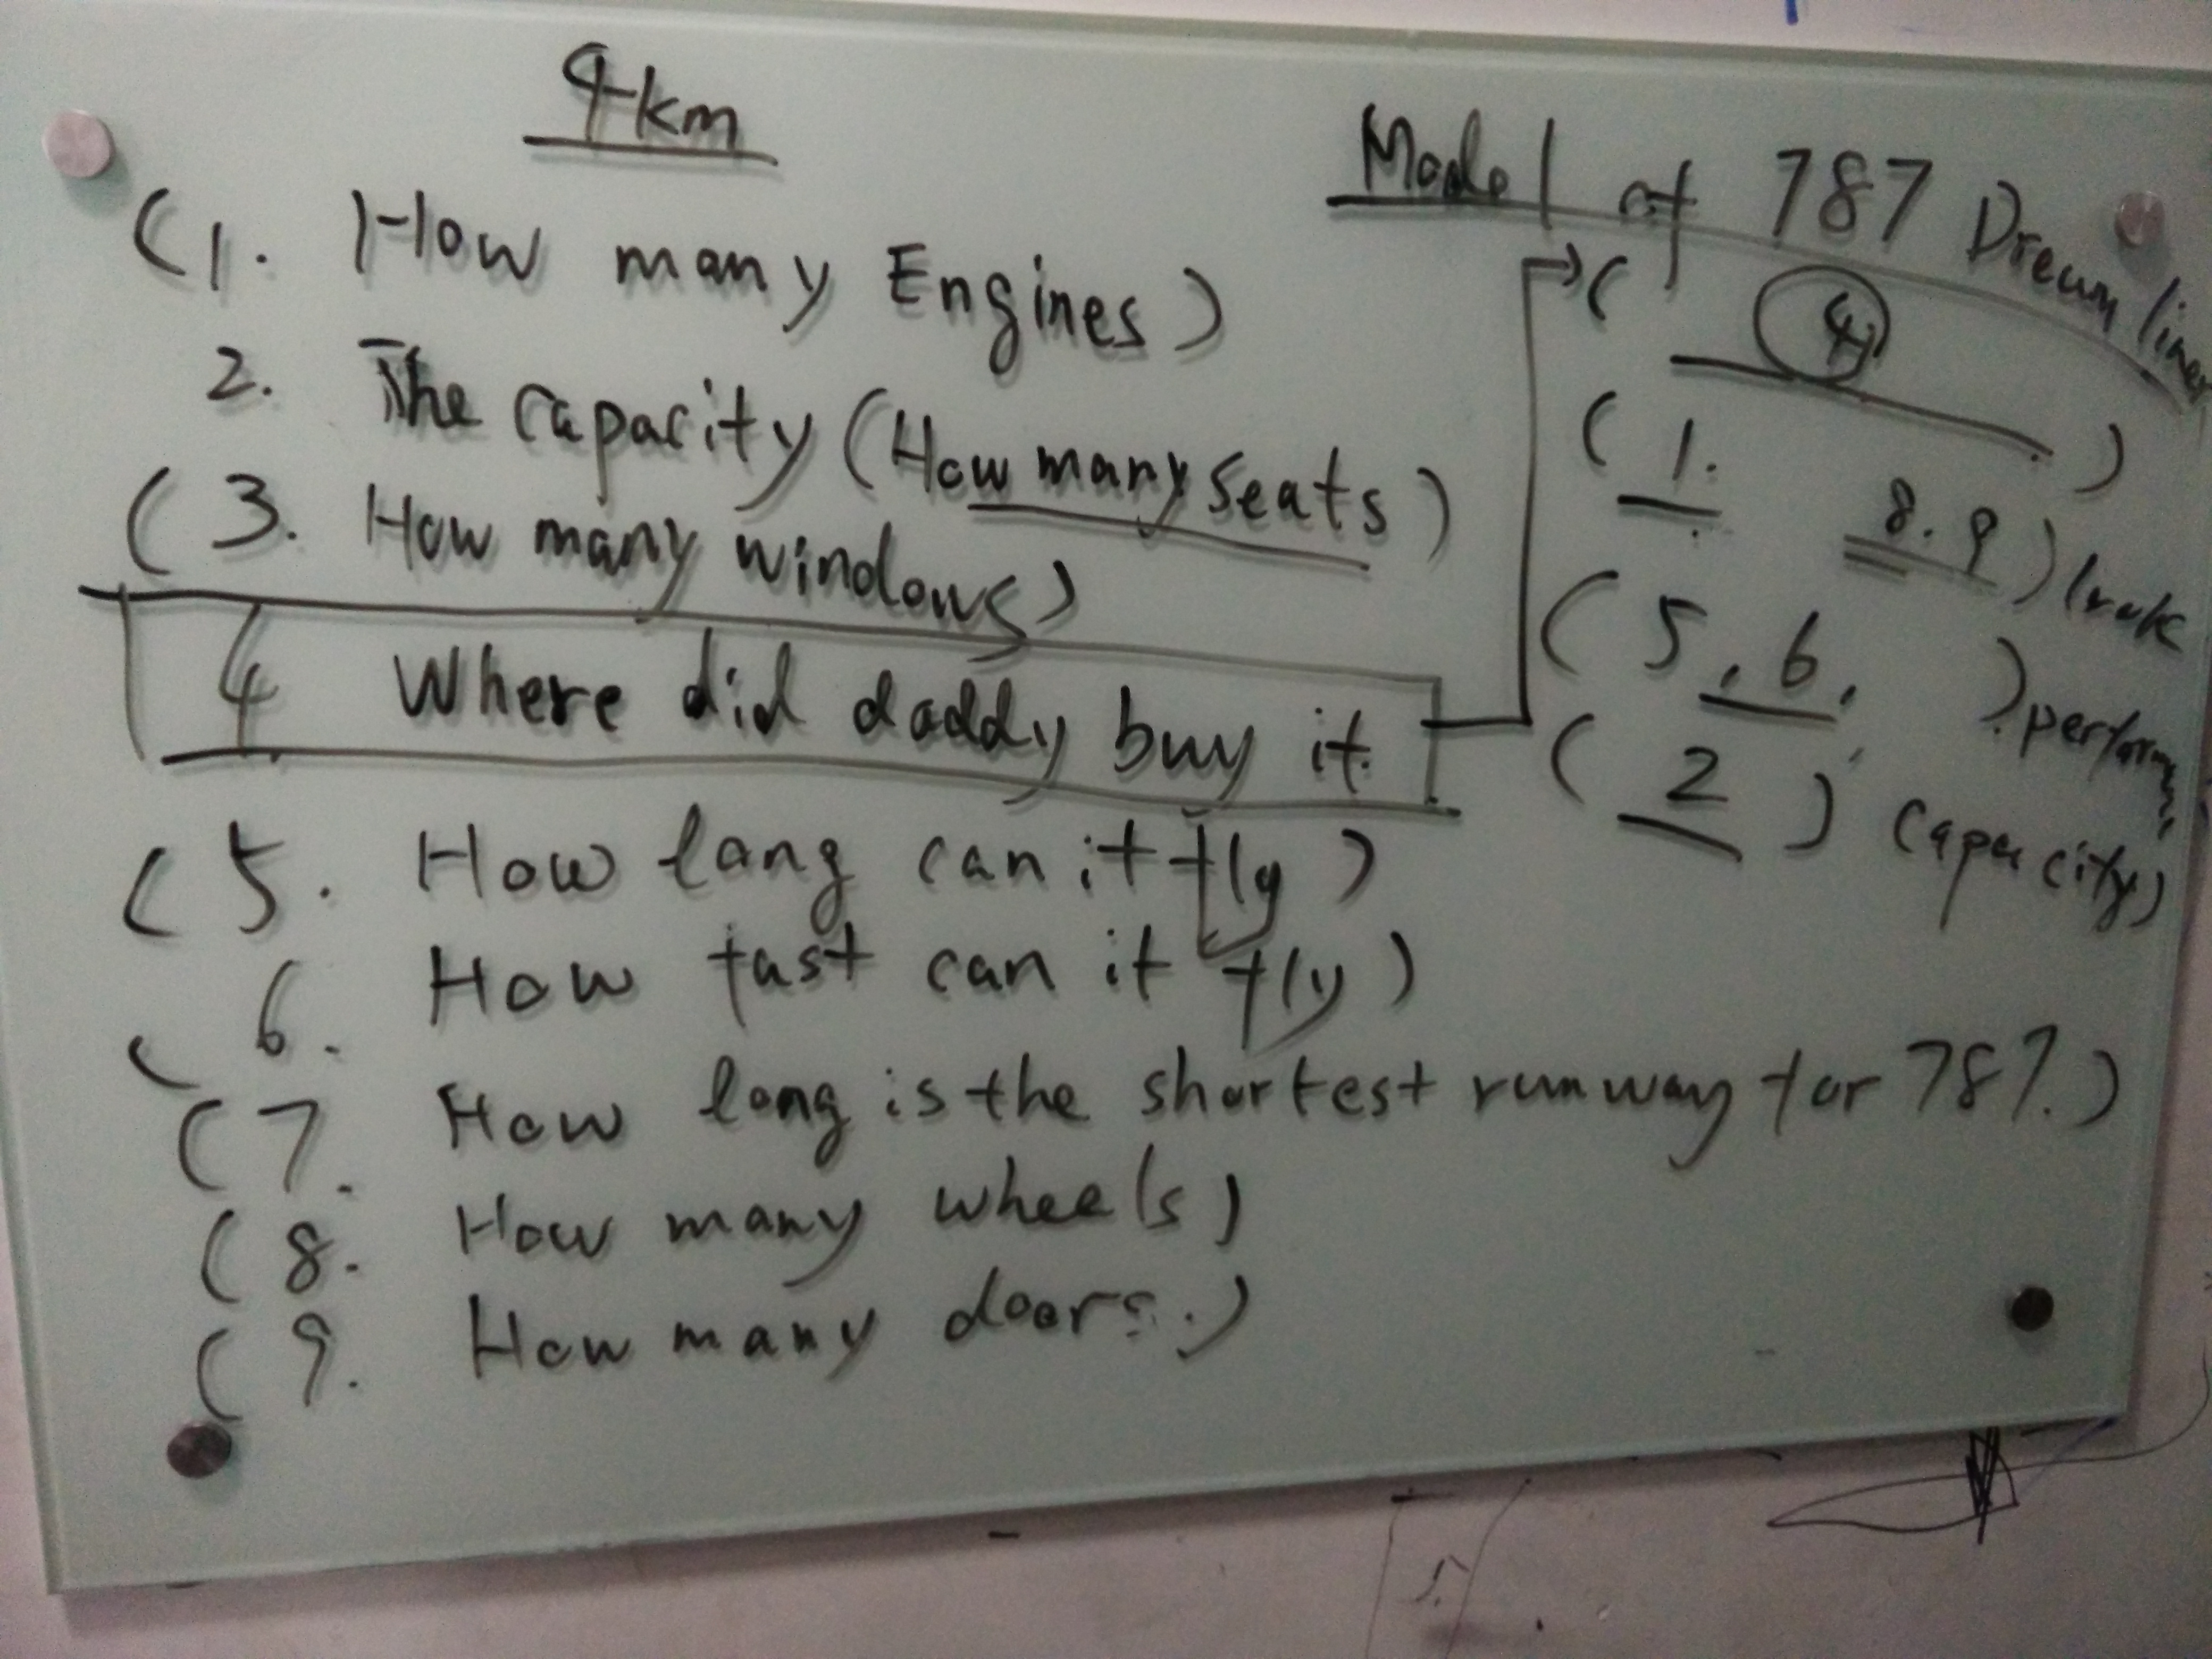 4km
(1. How many Engines)
2. The capacity (How many seats)
(3. How many windows)
4 Where did daddy buy it.
(5. How long can it fly)
(6. How fast can it fly)
(7. How long is the shortest runway for 787.)
(8. How many wheels)
(9. How many doors.)
Model of 787 Dreamliner
( 4 )
(1. 8. 9) look
(5, 6, ) perform
(2) capacity)